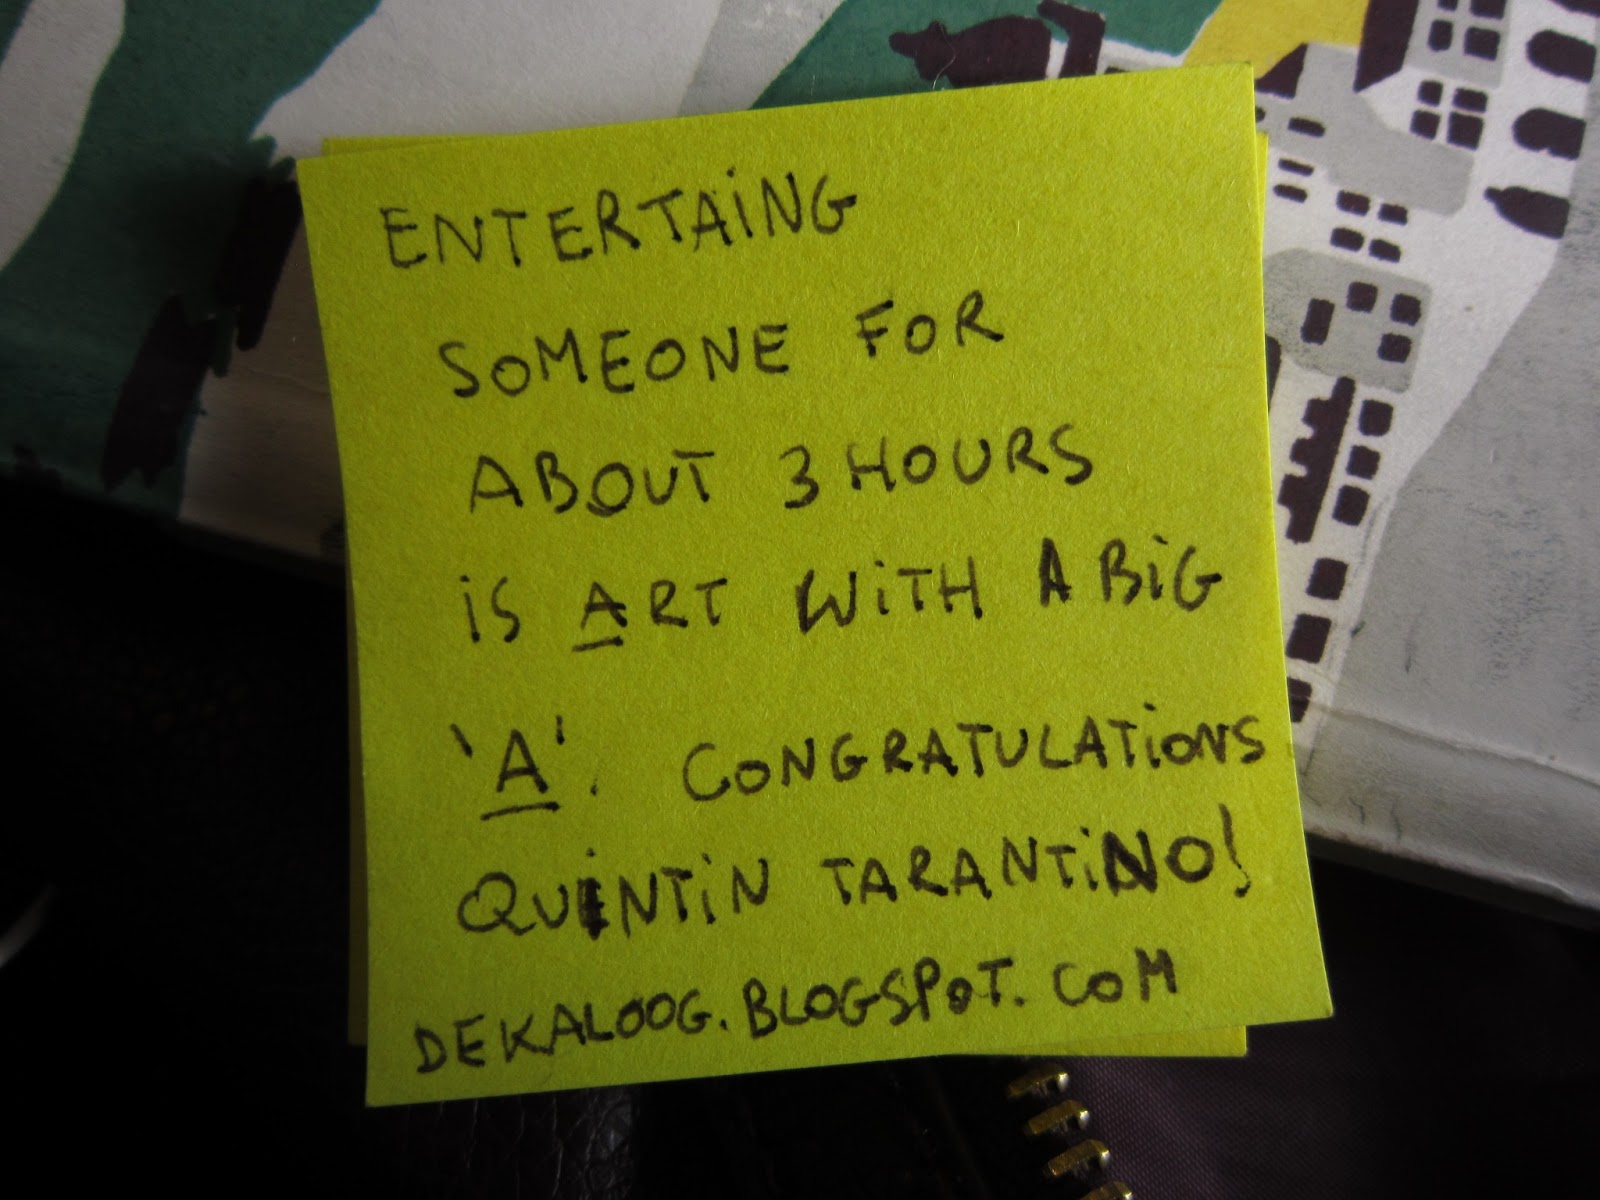 ENTERTAiNG
SOMEONE FOR
ABOUT 3 HOURS
iS ART WiTH A BiG
'A'. CONGRATULATiONS
QUENTiN TARANTiNO!
DEKALOOG.BLOGSPOT.COM